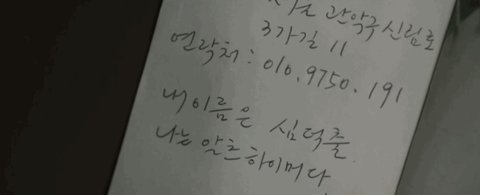 관악구 신림로
3가길 11
연락처 : 010.9750.191
내 이름은 심덕출
나는 알츠하이머다.